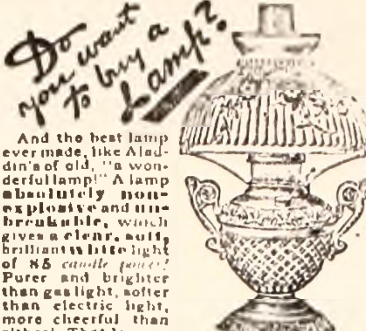 Do
you want
to buy a
Lamp?
And the best lamp
ever made, like Alad-
din's of old, "a won-
derful lamp!" A lamp
absolutely non-
explosive and un-
breakable, which
gives a clear, soft,
brilliant white light
of 85 candle power!
Purer and brighter
than gas light, softer
than electric light,
more cheerful than
either! That is